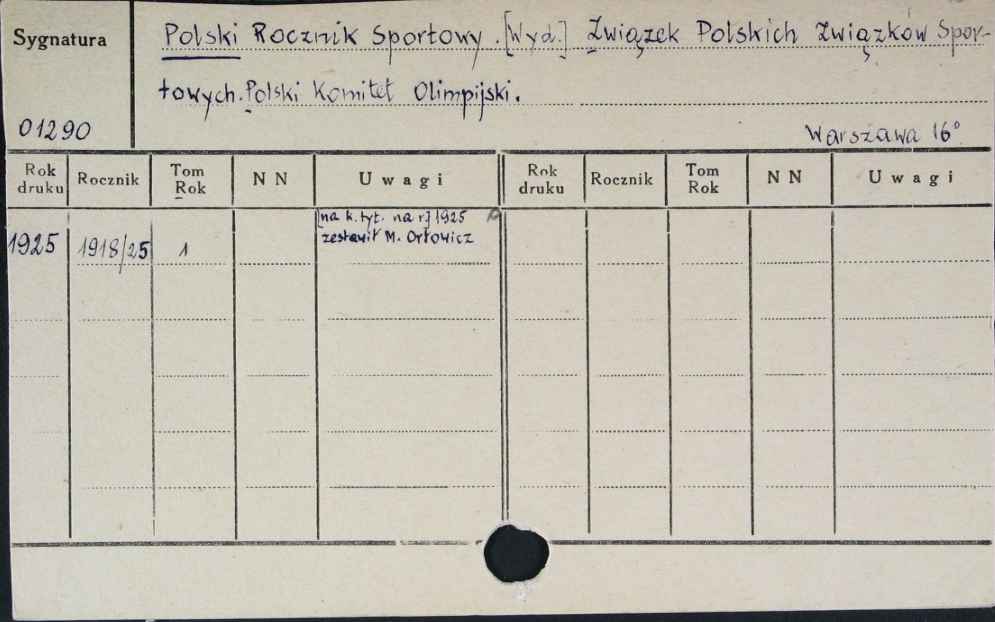 Sygnatura
Polski Rocznik Sportowy. [Wyd.] Związek Polskich Związków Spor-
towych. Polski Komitet Olimpijski.
01290
Warszawa 16°
Rok druku Rocznik Tom Rok N N Uwagi Rok druku Rocznik Tom Rok N N Uwagi
[na k. tyt. na r.] 1925
1925 1918/25 1 zestawił M. Orłowicz